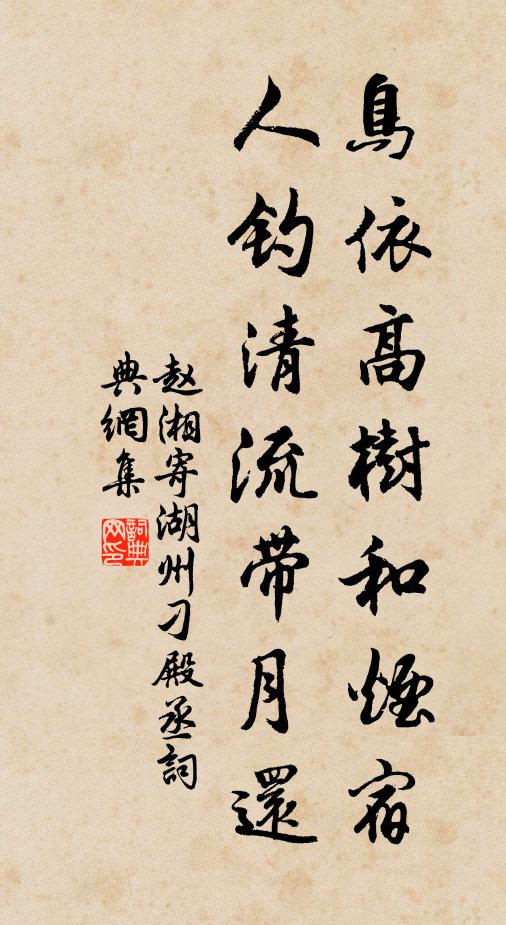 鳥依高樹和煙宿
人釣清流帶月還
赵湘寄湖州刁殿丞詞
典網集
詞典網印